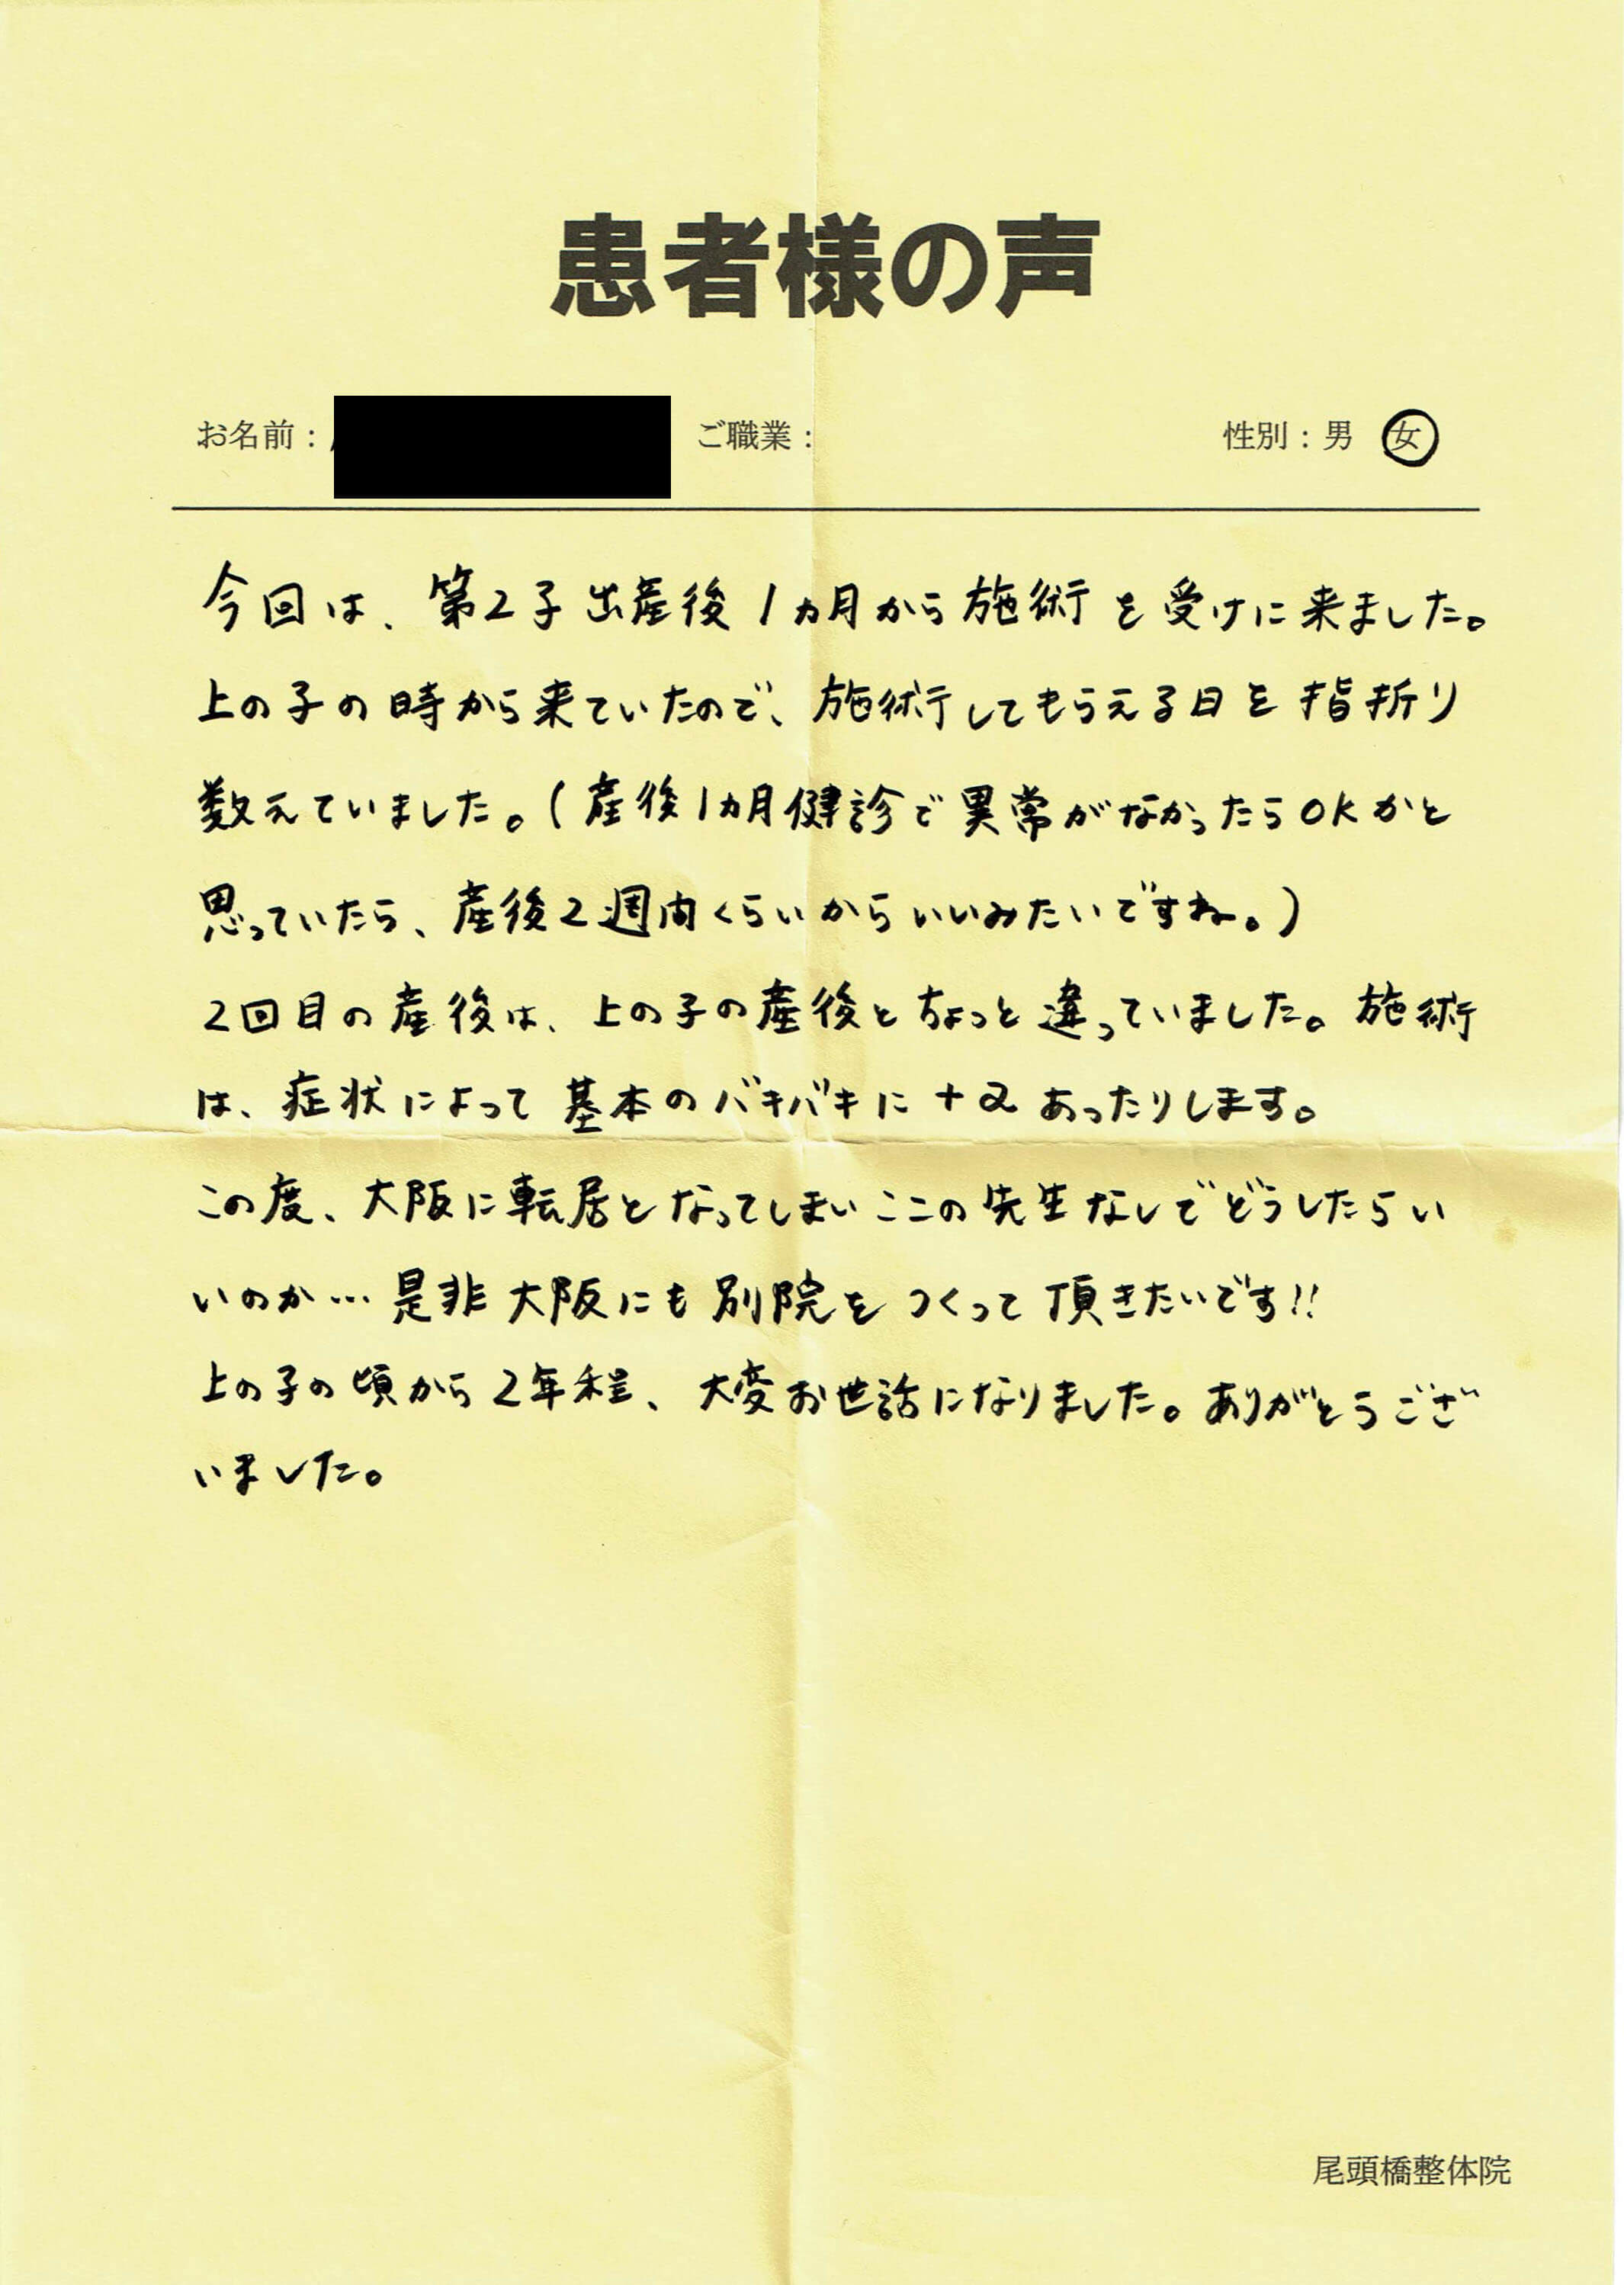 患者様の声
お名前： ご職業： 性別：男 女
今回は、第2子出産後1ヵ月から施術を受けに来ました。
上の子の時から来ていたので、施術してもらえる日を指折り
数えていました。(産後1ヵ月健診で異常がなかったらOKかと
思っていたら、産後2週間くらいからいいみたいですね。)
2回目の産後は、上の子の産後とちょっと違っていました。施術
は、症状によって基本のバキバキに+αあったりします。
この度、大阪に転居となってしまいここの先生なしでどうしたらい
いのか…是非大阪にも別院をつくって頂きたいです!!
上の子の頃から2年程、大変お世話になりました。ありがとうござ
いました。
尾頭橋整体院